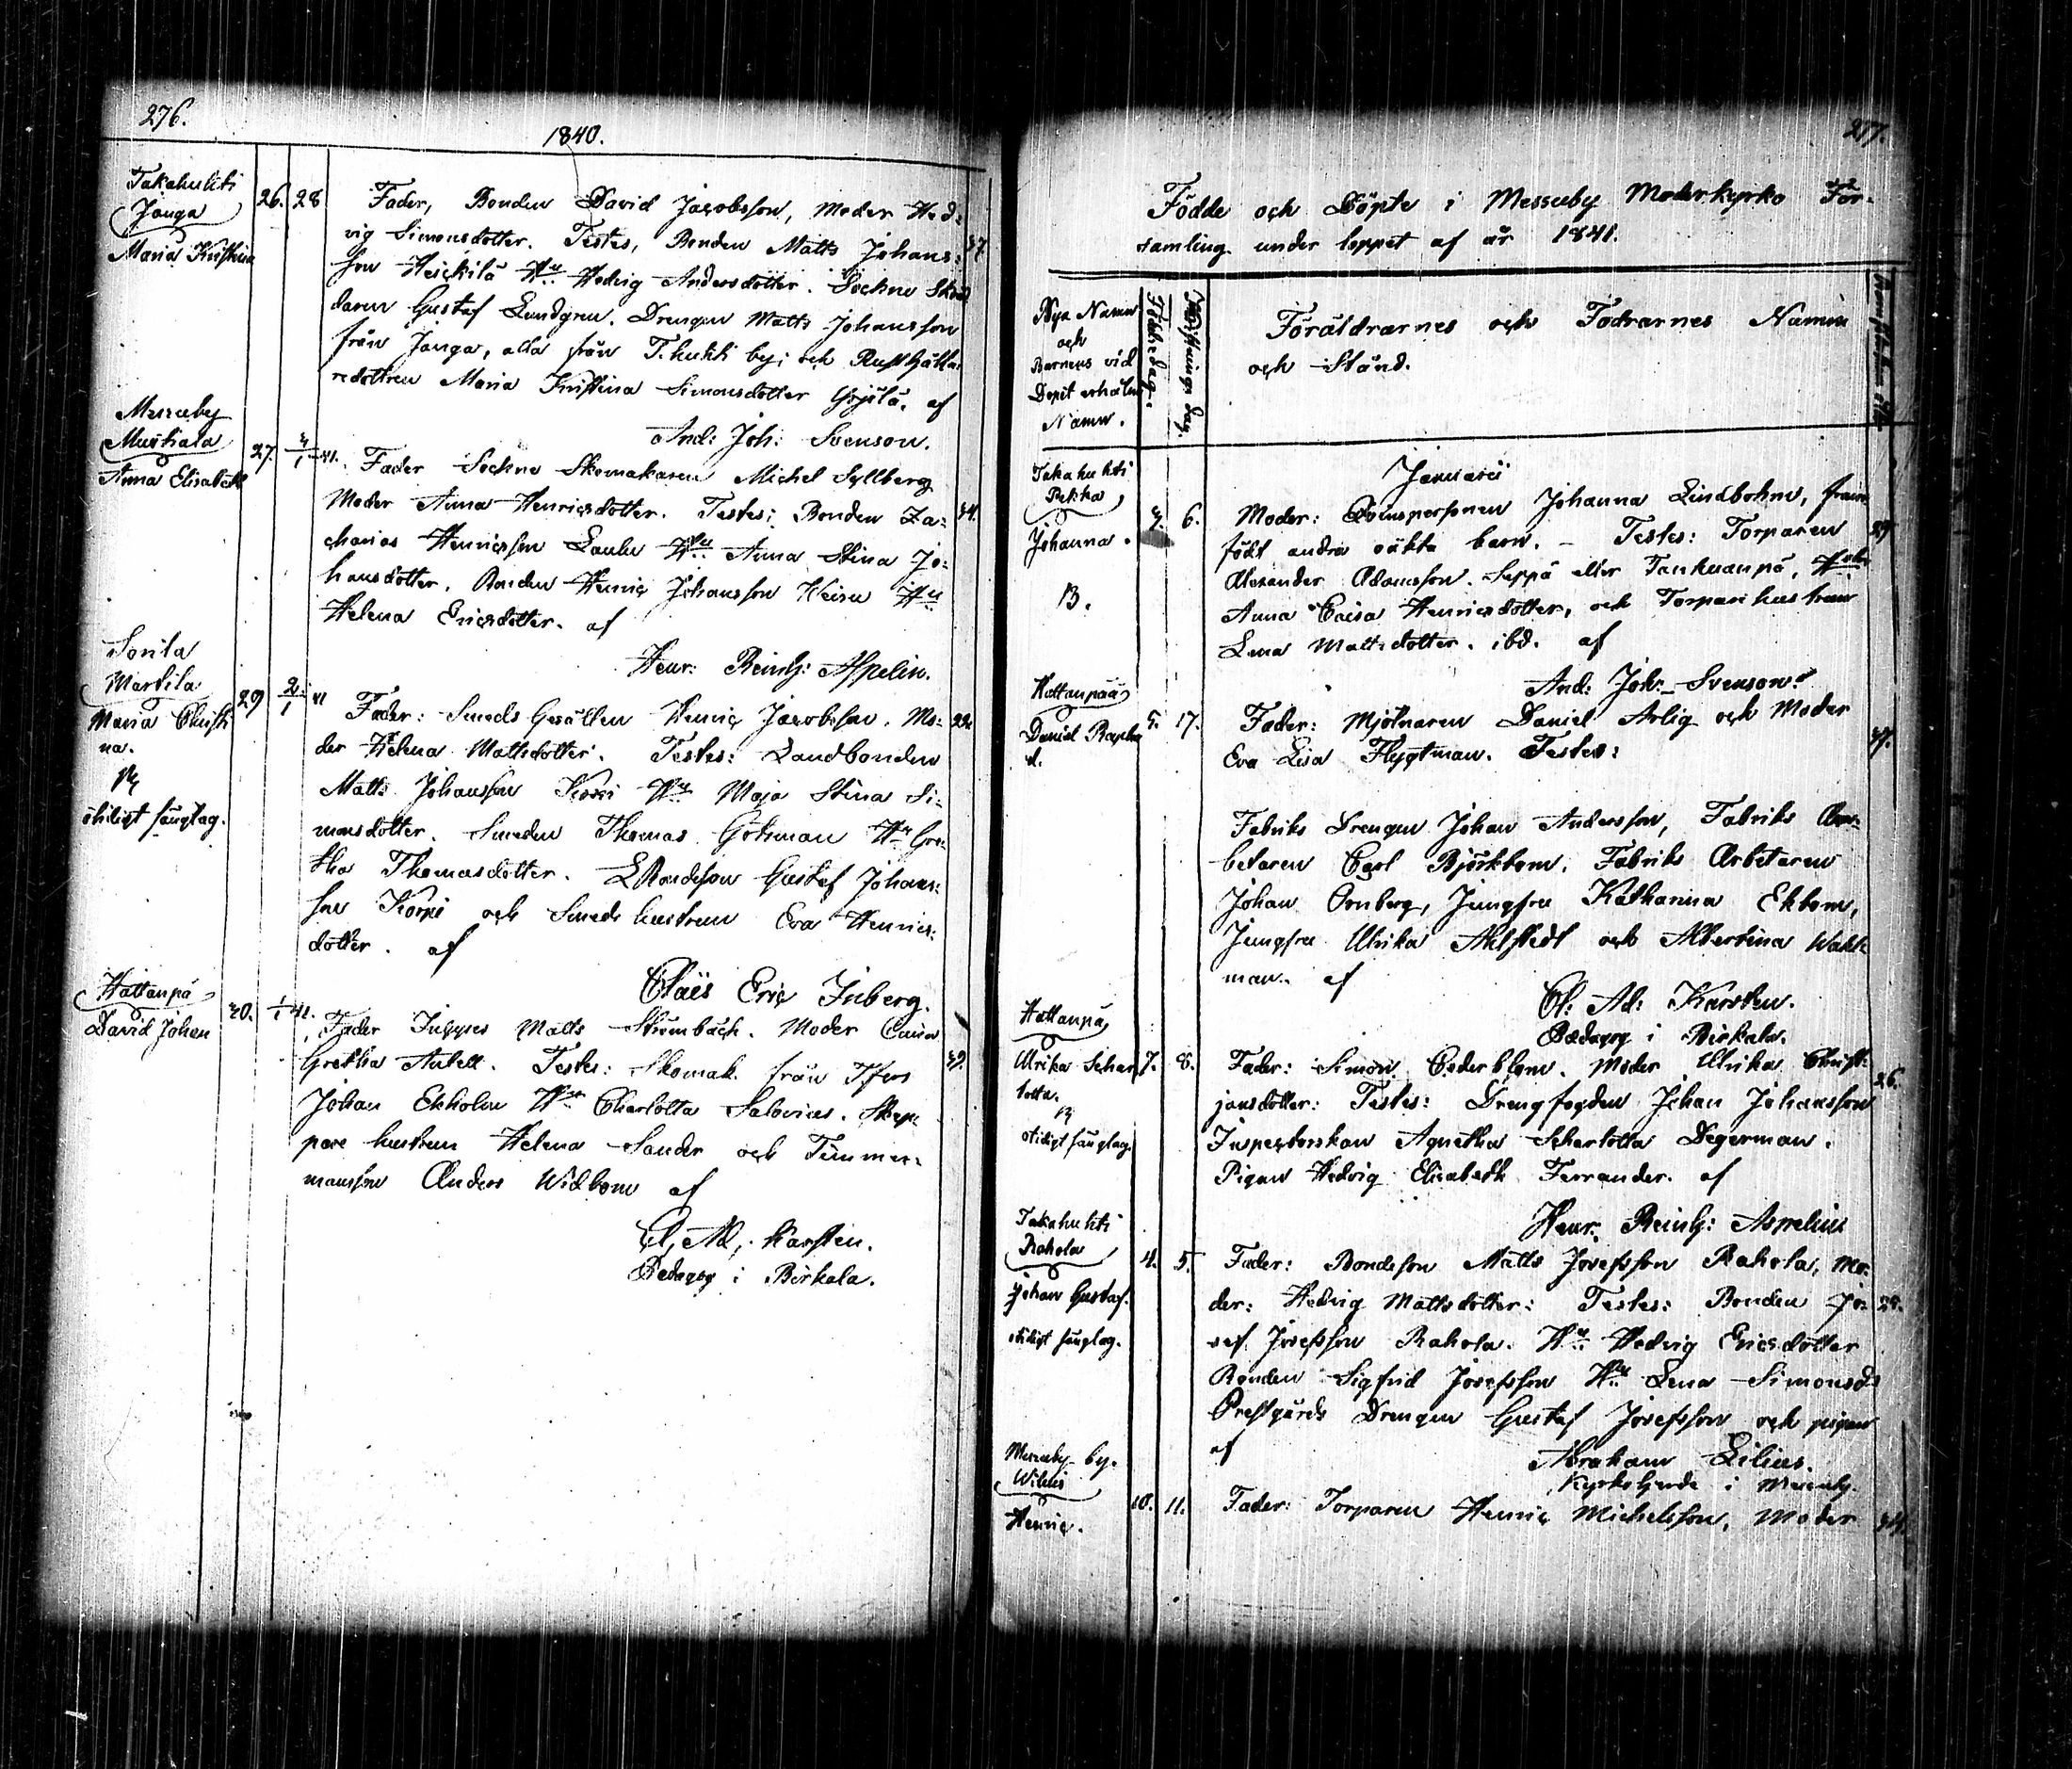 276.
1840.
Takahuhti
Janga
Maria Kristina
26. 28
Fader, Bonden David Jacobsson, Moder Hed-
vig Simonsdotter. Testes, Bonden Matts Johans-
son Heickilä Hu Hedvig Andersdotter. Sockne Skräd
daren Gustaf Lundgren. Drengen Matts Johansson
från Janga, alla från T.huhti by; och Rusthålla-
redottren Maria Kristina Simonsdotter af
And: Joh: Svenson.
Messuby
Mustiala
Anna Elisabeth
27. 41.
Fader Sockne Skomakaren Michel Syllberg
34.
Moder Anna Henricsdotter. Testes; Bonden Za-
charias Henricsson Laulu Hu Anna Stina Jo-
hansdotter. Bonden Henric Johansson Keisu Hu
Helena Ericsdotter. af
Henr: Reinh: Aspelin.
Sorila
Martila
Maria Christi
na.
29 2/1 41
Fader: Smeds Gesällen Henric Jacobsson. Mo- 22
der Helena Mattsdotter. Testes: Landbonden
Matts Johansson Korpi Hu Maja Stina Si-
monsdotter. Smeden Thomas Götsman Hu Gre-
tha Thomasdotter. LBondeson Gustaf Johans-
son Korpi och Smeds hustrun Eva Henrics-
dotter. af
Claës Eric Inberg.
Hattanpä
David Johan
30. 1/1 41.
Fader Matts Strömbäck. Moder Caisa
Gretha Antell. Testes: Skomak. från T.fors
39.
Johan Ekholm Hu Charlotta Salovius. Skep-
pare hustrun Helena Sander och Timmer-
mansson Anders Widbom af
C. Ad: Karsten.
Pædagog i Birkala.
277.
Födde och Döpte i Messuby Moderkyrko För-
samling under loppet af år 1841.
Bya Namn
och
Barnens vid
Dopet erhållne
Namn.
Födelsedag.
Christnings dag.
Föräldrarnes och Fadrarnes Namn
och Stånd.
Januarii
Takahuhti
Pekka
Johanna.
B.
3. 6.
Moder: Qvinspersonen Johanna Lindbohm, fram
födt andra oäkta barn. - Testes: Torparen 29
Alexander Adamsson. Seppä eller Tankuanpä, Hustr
Anna Caisa Henricsdotter, och Torparehustrun
Lena Mattsdotter. ibd. af
And: Joh: Svenson.
Hattanpää
Daniel Rapha
el.
5. 17.
Fader: Mjölnaren Daniel Arlig och Moder
37.
Eva Lisa Flygtman. Testes:
Fabriks Drengen Johan Andersson, Fabriks Ar-
betaren Carl Björkbom. Fabriks Arbetaren
Johan Örnberg, Jungfru Katharina Ekbom,
Jungfru Ulrika Ahlstedt och Albertina Wahl-
man. af
C: Ad: Karsten.
Pædagog i Birkala.
Hattanpä
Ulrika Schar
lotta.
7. 8.
Fader: Simon Cederblom. Moder Ulrika Christi-
26.
jansdotter: Testes: Drengfogden Johan Johansson
Inspectorskan Agnetha Scharlotta Degerman.
Pigan Hedvig Elisabeth Ferrander. af
Henr: Reinh: Aspelin
Takahuhti
Rahola
Johan Gustaf.
4. 5.
Fader: Bondeson Matts Josefsson Rahola, Mo-
der: Hedvig Mattsdotter: Testes: Bonden Jo-
sef Josefsson Rahola. Hu Hedvig Ericsdotter
Bonden Sigfrid Josefsson Hu Lena Simonsd
Prestgårds Drengen Gustaf Josefsson och pigan
af
Abraham Lilius.
Kyrkoherde i Messuby.
Messuby by.
Henric.
10. 11.
Fader: Torparen Henric Michelsson, Moder 34.